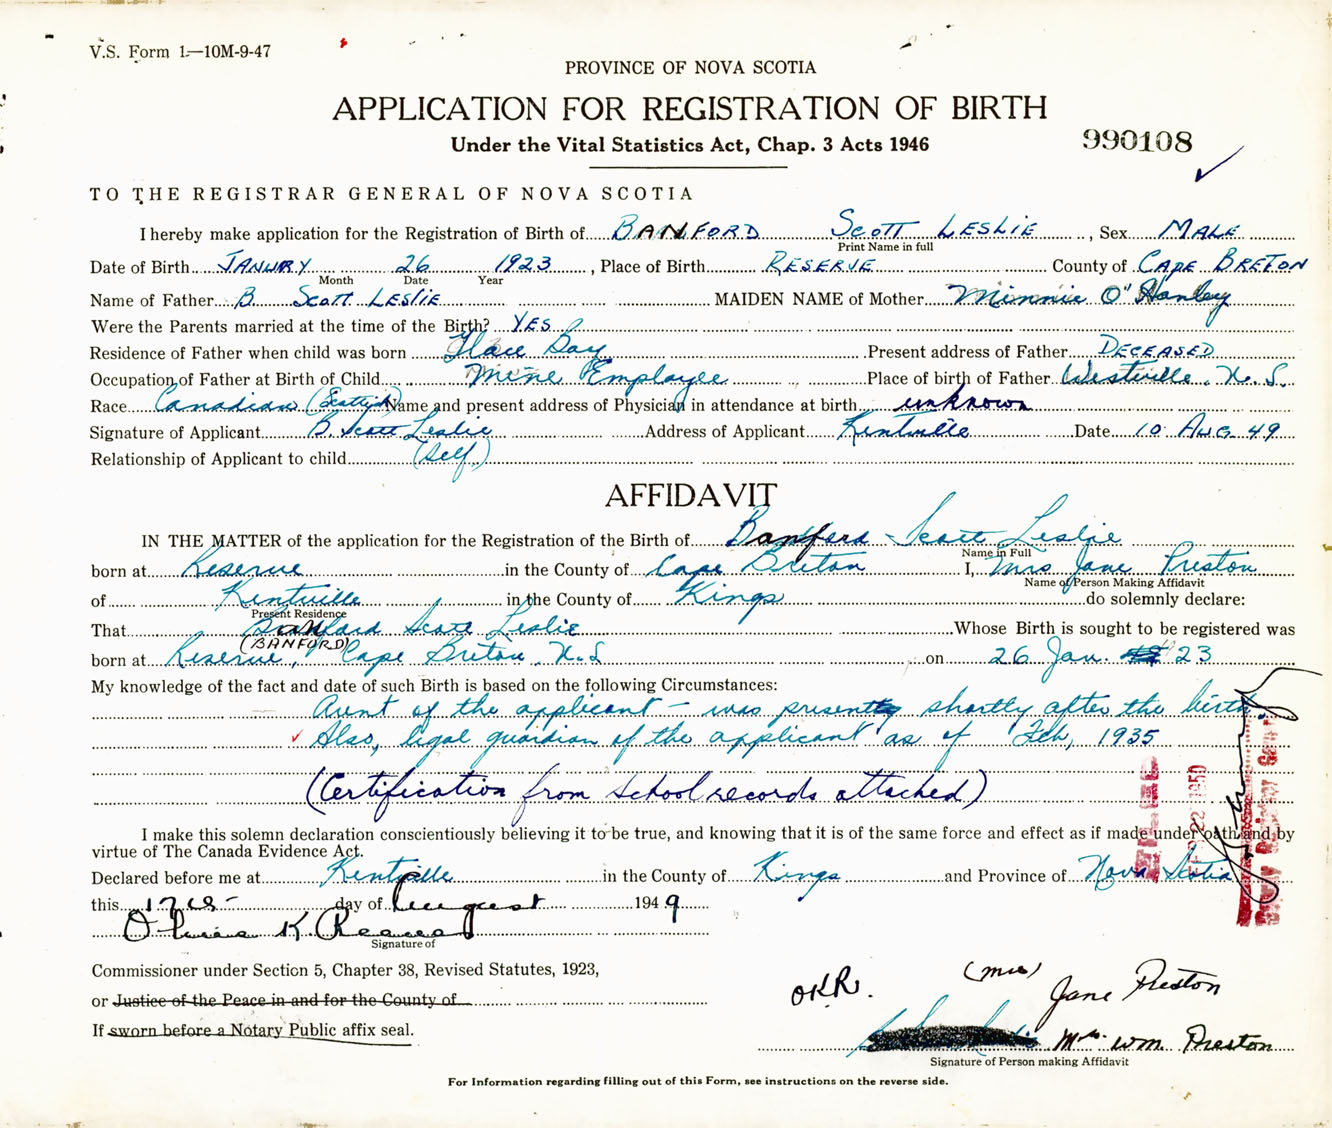 V.S. Form 1.—10M-9-47
PROVINCE OF NOVA SCOTIA
APPLICATION FOR REGISTRATION OF BIRTH
Under the Vital Statistics Act, Chap. 3 Acts 1946
990108
TO THE REGISTRAR GENERAL OF NOVA SCOTIA
I hereby make application for the Registration of Birth of BANFORD SCOTT LESLIE, Sex MALE
Print Name in full
Date of Birth JANURY 26 1923, Place of Birth RESERVE County of CAPE BRETON
Month Date Year
Name of Father B. SCOTT LESLIE MAIDEN NAME of Mother Minnie O'Hanley
Were the Parents married at the time of the Birth? YES
Residence of Father when child was born Glace Bay Present address of Father DECEASED
Occupation of Father at Birth of Child Mine Employee Place of birth of Father Westville, N.S.
Race Canadian (Scottish) Name and present address of Physician in attendance at birth unknown
Signature of Applicant B. Scott Leslie Address of Applicant Kentville Date 10 AUG 49
Relationship of Applicant to child (Self)
AFFIDAVIT
IN THE MATTER of the application for the Registration of the Birth of Banford Scott Leslie
Name in Full
born at Reserve in the County of Cape Breton I, Mrs Jane Preston
Name of Person Making Affidavit
of Kentville in the County of Kings do solemnly declare:
Present Residence
That Banford Scott Leslie Whose Birth is sought to be registered was
(BANFORD)
born at Reserve, Cape Breton, N.S on 26 Jan. 23
My knowledge of the fact and date of such Birth is based on the following Circumstances:
Aunt of the applicant — was present shortly after the birth.
Also, legal guardian of the applicant as of Feb, 1935
(Certification from School records attached)
I make this solemn declaration conscientiously believing it to be true, and knowing that it is of the same force and effect as if made under oath and by
virtue of The Canada Evidence Act.
Declared before me at Kentville in the County of Kings and Province of Nova Scotia
this day of August 1949
K
Signature of
Commissioner under Section 5, Chapter 38, Revised Statutes, 1923,
or Justice of the Peace in and for the County of
If sworn before a Notary Public affix seal.
OKR. (Mrs) Jane Preston
Mrs. Wm. Preston
Signature of Person making Affidavit
For Information regarding filling out of this Form, see instructions on the reverse side.